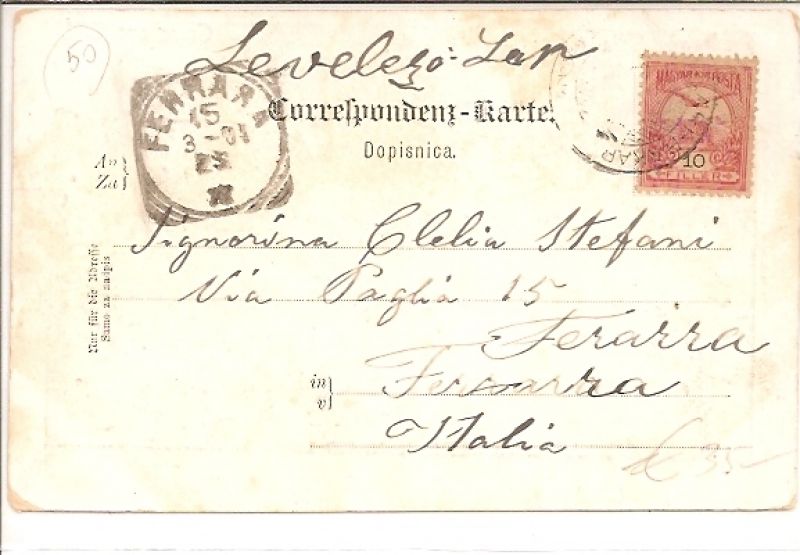 50
Levelező-Lap
Correspondenz-Karte.
Dopisnica.
FERRARA
15
3-01
23
MAGYAR KIR. POSTA
10
FILLER
An
Za
Signorina Clelia Stefani
Via Paglia 15
Ferarra
Ferrarra
in
v
Italia
Nur für die Adresse
Samo za naslov
35-